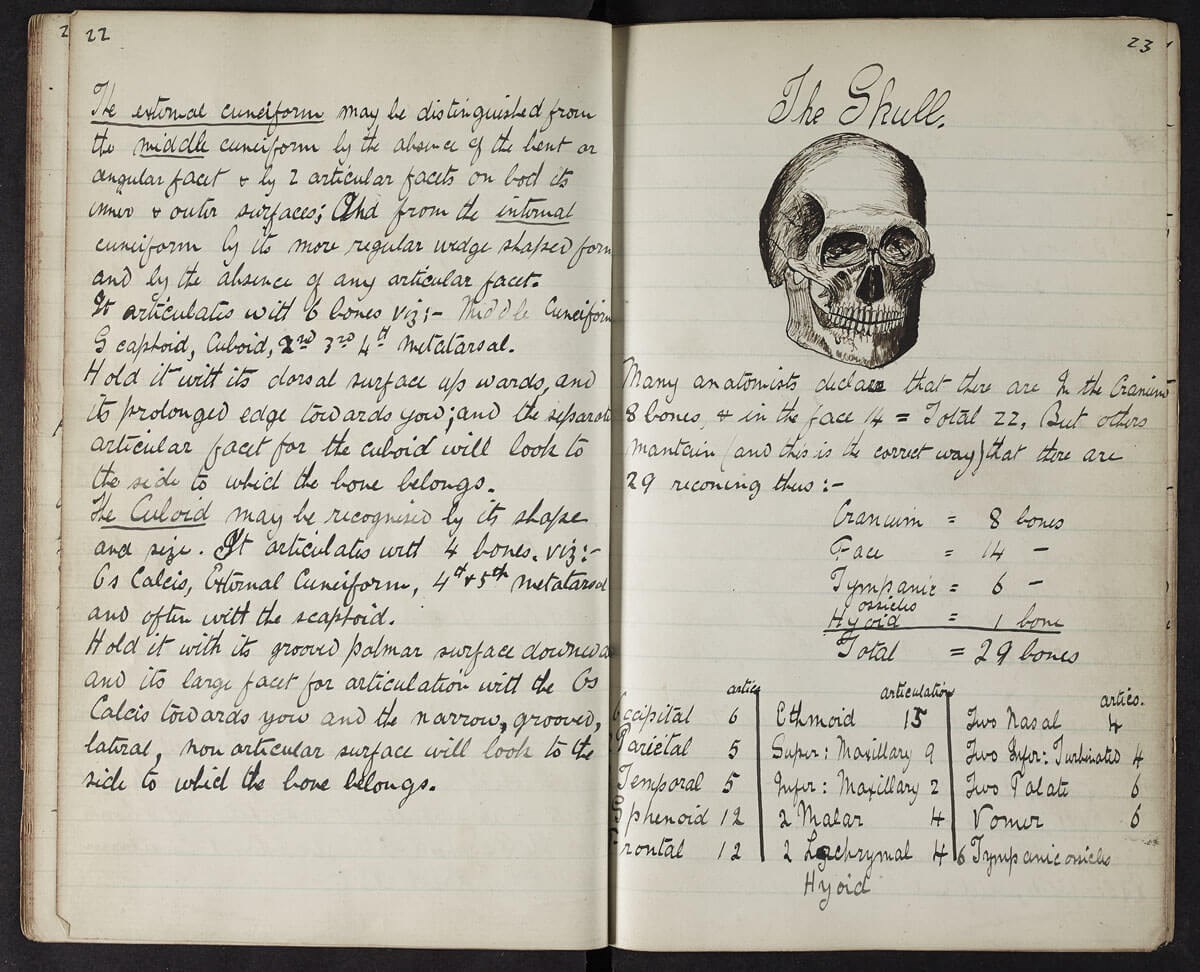 22
The external cuneiform may be distinguished from
the middle cuneiform by the absence of the bent or
angular facet & by 2 articular facets on both its
inner & outer surfaces; And from the internal
cuneiform by its more regular wedge shaped form
and by the absence of any articular facet.
It articulates with 6 bones viz:- Middle Cuneiform
Scaphoid, Cuboid, 2nd 3rd 4th Metatarsal.
Hold it with its dorsal surface upwards, and
its prolonged edge towards you; and the separate
articular facet for the cuboid will look to
the side to which the bone belongs.
The Cuboid may be recognised by its shape
and size. It articulates with 4 bones. viz:-
Os Calcis, External Cuneiform, 4th & 5th Metatarsal
and often with the scaphoid.
Hold it with its grooved palmar surface downwa
and its large facet for articulation with the Os
Calcis towards you and the narrow, grooved,
lateral, non articular surface will look to the
side to which the bone belongs.
23
The Skull.
Many anatomists declare that there are In the Cranium
8 bones, & in the face 14 = Total 22, But others
mantain (and this is the correct way) that there are
29 reconing thus:-
Cranium = 8 bones
Face = 14 -
Tympanic = 6 -
ossicles
Hyoid = 1 bone
Total = 29 bones
artics articulation artics.
Occipital 6 Ethmoid 15 Two Nasal 4
Parietal 5 Super: Maxillary 9 Two Infer: Turbinated 4
Temporal 5 Infer: Maxillary 2 Two Palate 6
Sphenoid 12 2 Malar 4 Vomer 6
Frontal 12 2 Lachrymal 4 6 Tympanic ossicles
Hyoid